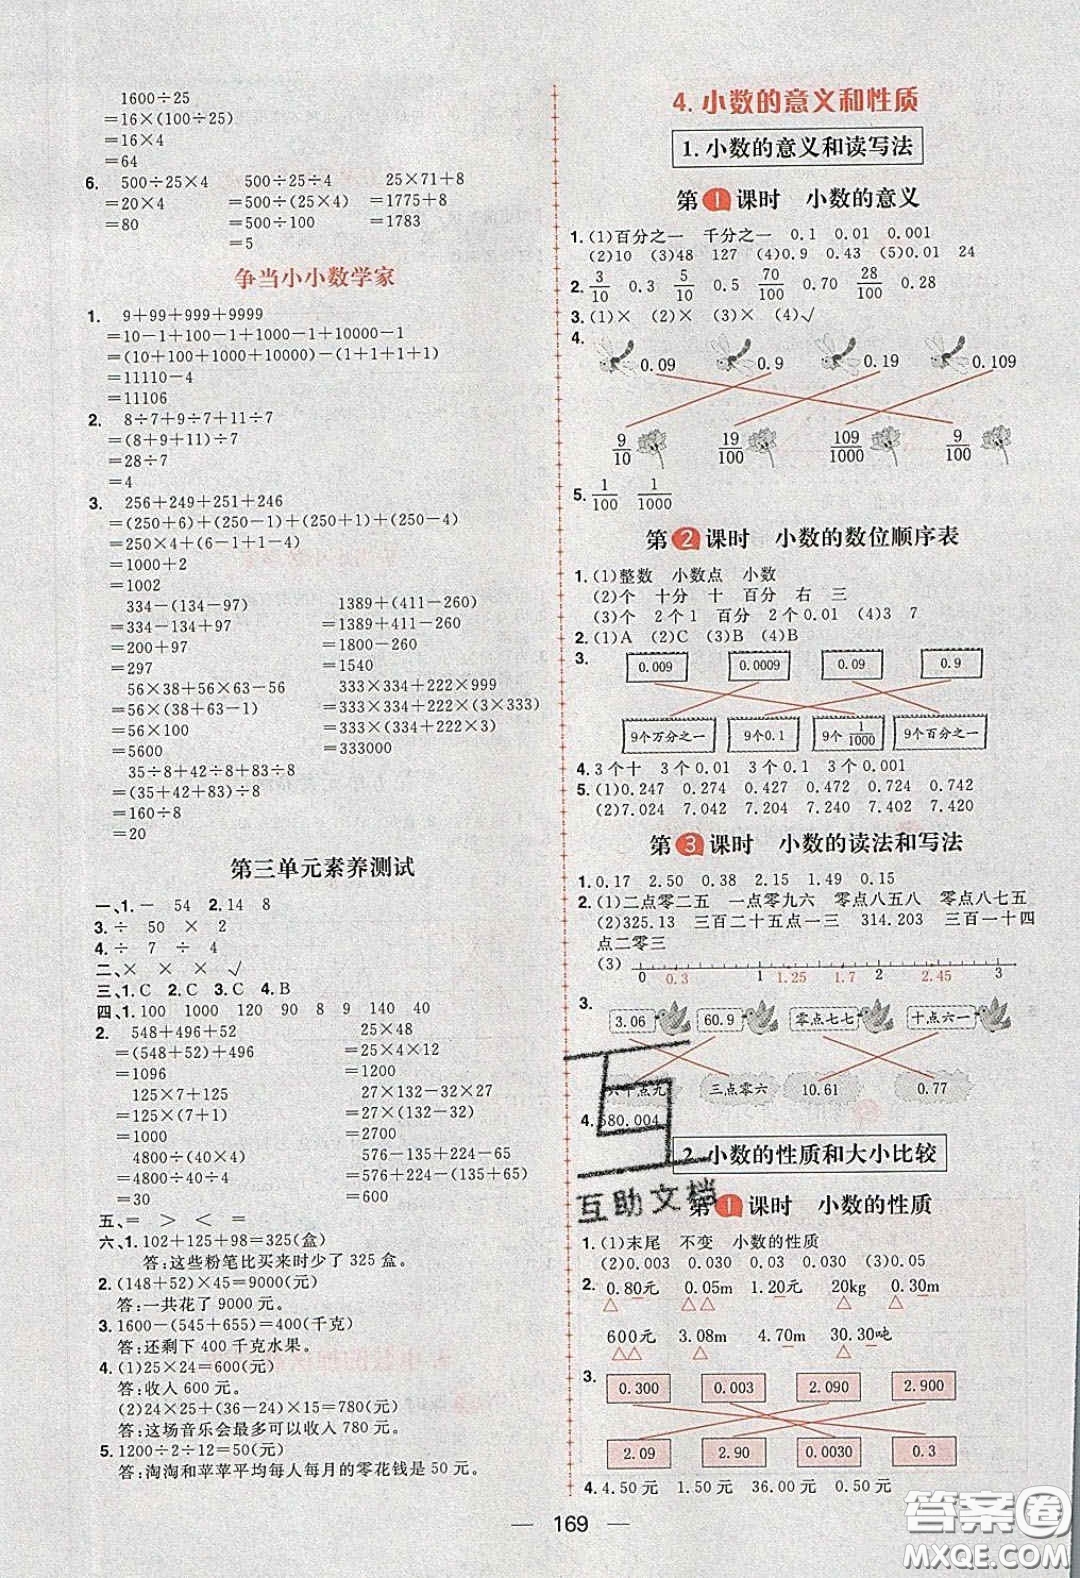 1600÷25
=16×(100÷25)
=16×4
=64
6. 500÷25×4 500÷25÷4 25×71+8
=20×4 =500÷(25×4) =1775+8
=80 =500÷100 =1783
=5
争当小小数学家
1. 9+99+999+9999
=10-1+100-1+1000-1+10000-1
=(10+100+1000+10000)-(1+1+1+1)
=11110-4
=11106
2. 8÷7+9÷7+11÷7
=(8+9+11)÷7
=28÷7
=4
3. 256+249+251+246
=(250+6)+(250-1)+(250+1)+(250-4)
=250×4+(6-1+1-4)
=1000+2
=1002
334-(134-97) 1389+(411-260)
=334-134+97 =1389+411-260
=200+97 =1800-260
=297 =1540
56×38+56×63-56 333×334+222×999
=56×(38+63-1) =333×334+222×(3×333)
=56×100 =333×(334+222×3)
=5600 =333000
35÷8+42÷8+83÷8
=(35+42+83)÷8
=160÷8
=20
第三单元素养测试
一、1.- 54 2.14 8
3.÷ 50 × 2
4.÷ 7 ÷ 4
二、× × × √
三、1.C 2.C 3.C 4.B
四、1.100 1000 120 90 8 9 140 40
2. 548+496+52 25×48
=(548+52)+496 =25×4×12
=1096 =1200
125×7+125 27×132-32×27
=125×(7+1) =27×(132-32)
=1000 =2700
4800÷(40×4) 576+224-135-65
=4800÷40÷4 =576+224-(135+65)
=30 =600
五、= > < =
六、1.102+125+98=325(盒)
答:这些粉笔比买来时少了325盒。
2.(148+52)×45=9000(元)
答:一共花了9000元。
3.1600-(545+655)=400(千克)
答:还剩下400千克水果。
4.(1)25×24=600(元)
答:收入600元。
(2)24×25+(36-24)×15=780(元)
答:这场音乐会最多可以收入780元。
5.1200÷2÷12=50(元)
答:淘淘和苹苹平均每人每月的零花钱是50元。
4.小数的意义和性质
1.小数的意义和读写法
第1课时 小数的意义
1.(1)百分之一 千分之一 0.1 0.01 0.001
(2)10 (3)48 127 (4)0.9 0.43 (5)0.01 24
2. 3/10 0.3 5/10 0.5 70/100 0.70 28/100 0.28
3.(1)× (2)× (3)× (4)√
4. 0.09 0.9 0.19 0.109
9/10 19/100 109/1000 9/100
5. 1/100 1/1000
第2课时 小数的数位顺序表
1.(1)整数 小数点 小数
(2)个 十分 十 百分 右 三
(3)个 2个1 百分 2个0.01 (4)3 7
2.(1)A (2)C (3)B (4)B
3. 0.009 0.0009 0.09 0.9
9个万分之一 9个0.1 9个1/1000 9个百分之一
4.3个十 3个0.01 3个0.1 3个0.001
5.(1)0.247 0.274 0.427 0.472 0.724 0.742
(2)7.024 7.042 7.204 7.240 7.402 7.420
第3课时 小数的读法和写法
1.0.17 2.50 0.38 2.15 1.49 0.15
2.(1)二点零二五 一点零九六 零点八五八 零点八七五
(2)325.13 三百二十五点一三 314.203 三百一十四
点二零三
(3) 0 0.3 1 1.25 1.7 2 2.45 3
3. 3.06 60.9 零点七七 十点六一
六十点九 三点零六 10.61 0.77
4.580.004
2.小数的性质和大小比较
互助文档
第1课时 小数的性质
1.(1)末尾 不变 小数的性质
(2)0.003 0.030 0.03 0.030 (3)0.05
2. 0.80元 0.05m 1.20元 20kg 0.30m
600元 3.08m 4.70m 30.30吨
3. 0.300 0.003 2.090 2.900
2.09 2.90 0.0030 0.3
4.4.50元 1.50元 36.00元 0.50元
169
答案圈
MXQE.COM